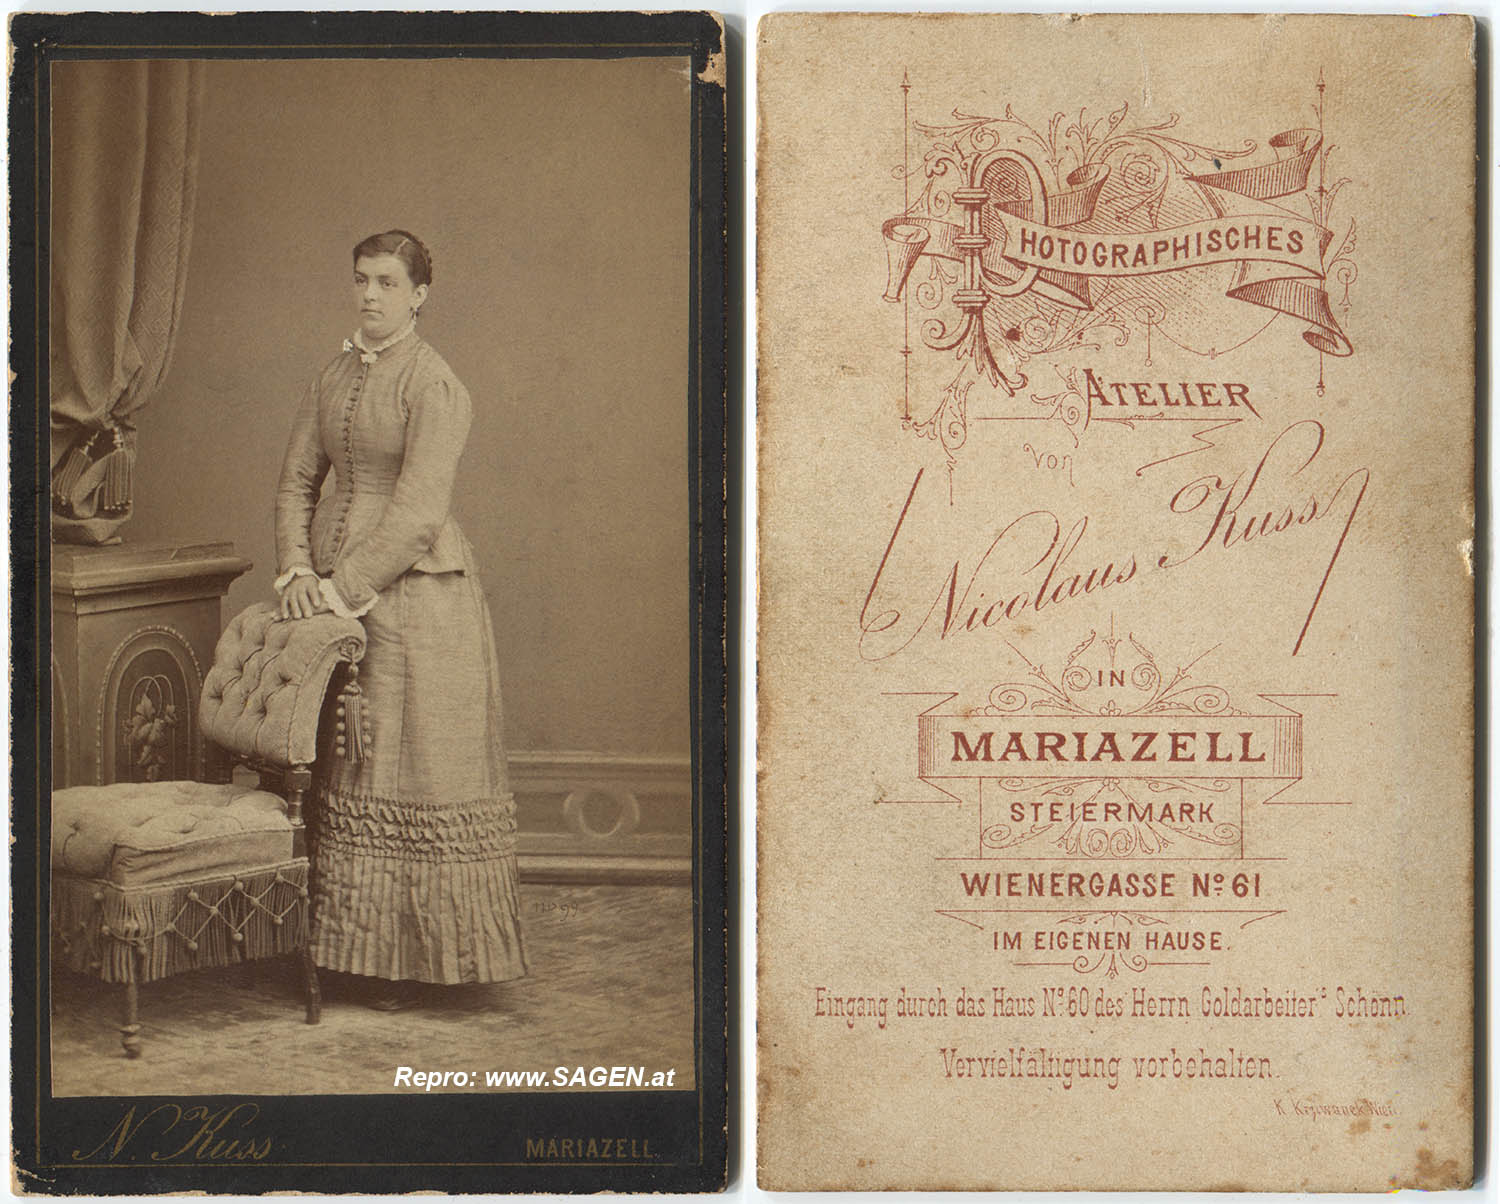 1120 99
Repro: www.SAGEN.at
N. Kuss
MARIAZELL.
PHOTOGRAPHISCHES
ATELIER
von
Nicolaus Kuss
IN
MARIAZELL
STEIERMARK
WIENERGASSE No. 61
IM EIGENEN HAUSE.
Eingang durch das Haus No. 60 des Herrn Goldarbeiter's Schönn.
Vervielfältigung vorbehalten.
K. Krziwanek Wien.